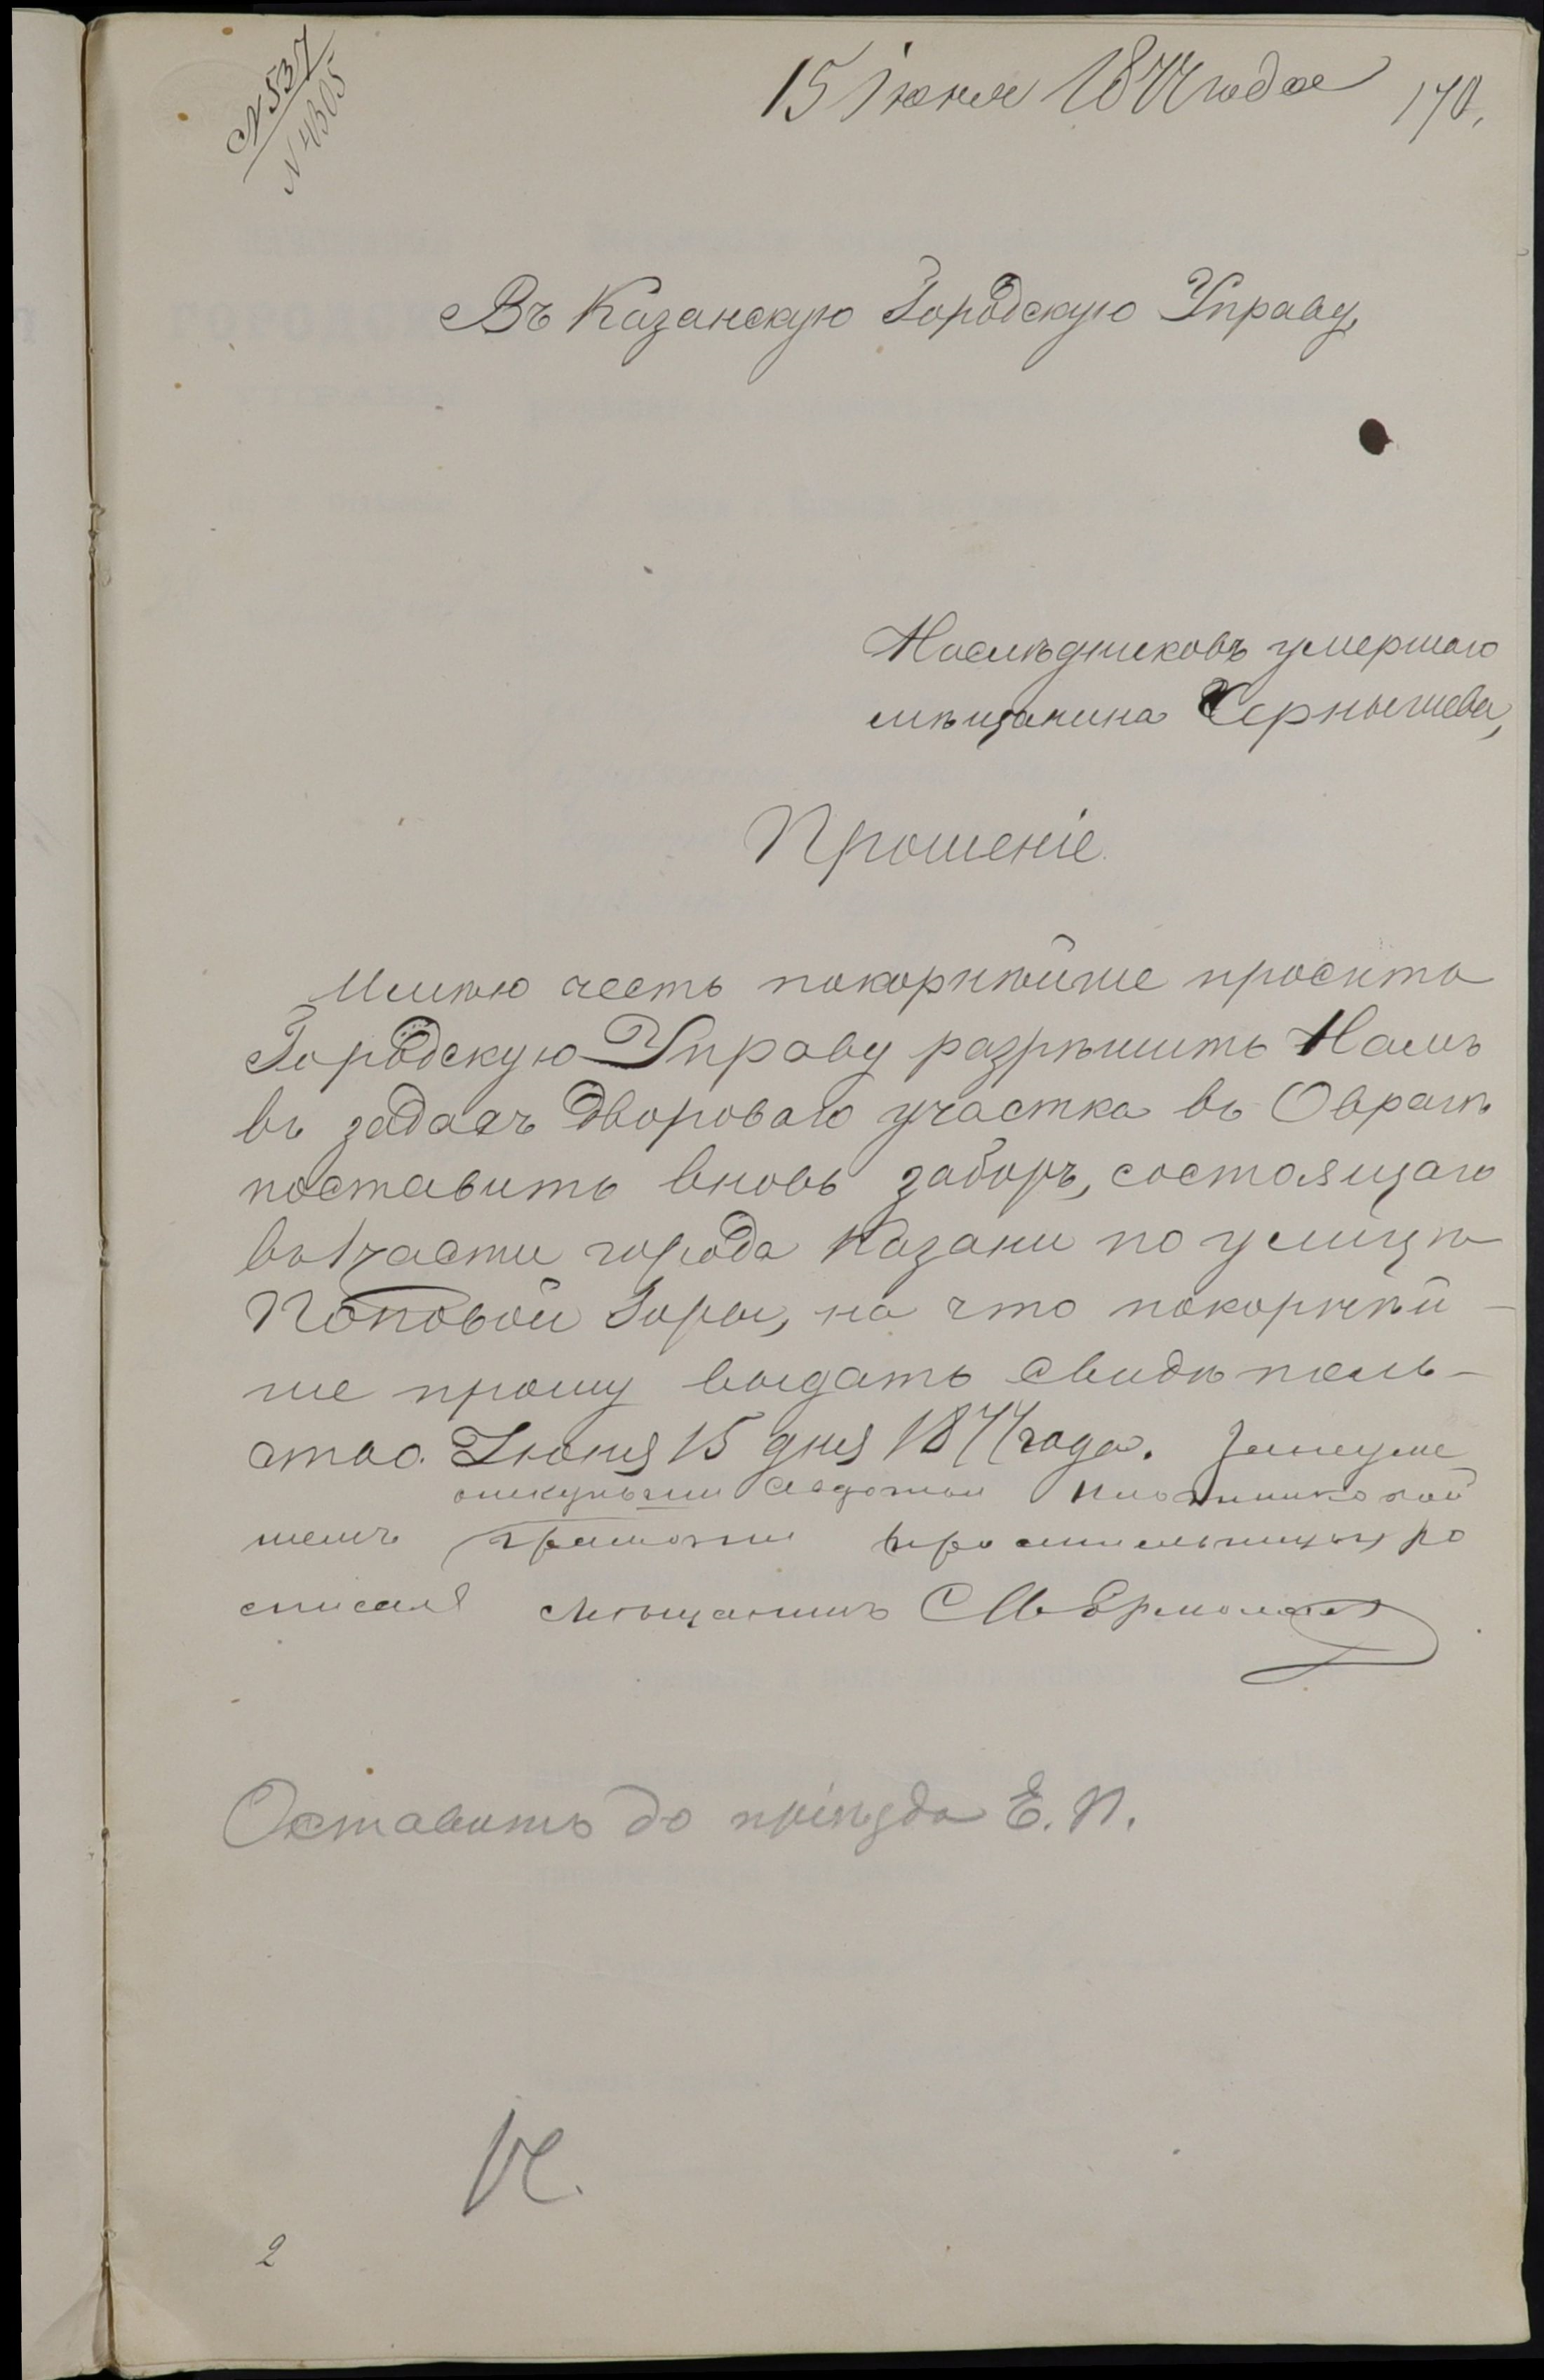 № 537
№ 4305
15 Іюня 1877 года
170.
Въ Казанскую Городскую Управу,
Наслѣдниковъ умершаго
мѣщанина Чернышева,
Прошеніе.
Имѣю честь покорнѣйше просить
Городскую Управу разрѣшить Намъ
въ задахъ Двороваго участка въ Оврагѣ
поставить вновь заборъ, состоящаго
въ 1 части города Казани по улицѣ
Поповой Горы, на что покорнѣй-
ше прошу выдать свидѣтель-
ство. Іюня 15 дня 1877 года. За неуме
опекунши Авдотьи
ніемъ грамоти просительницы ро
списался мѣщанинъ С М Ермолаевъ
Оставить до пріѣзда Е. П.
К.
2